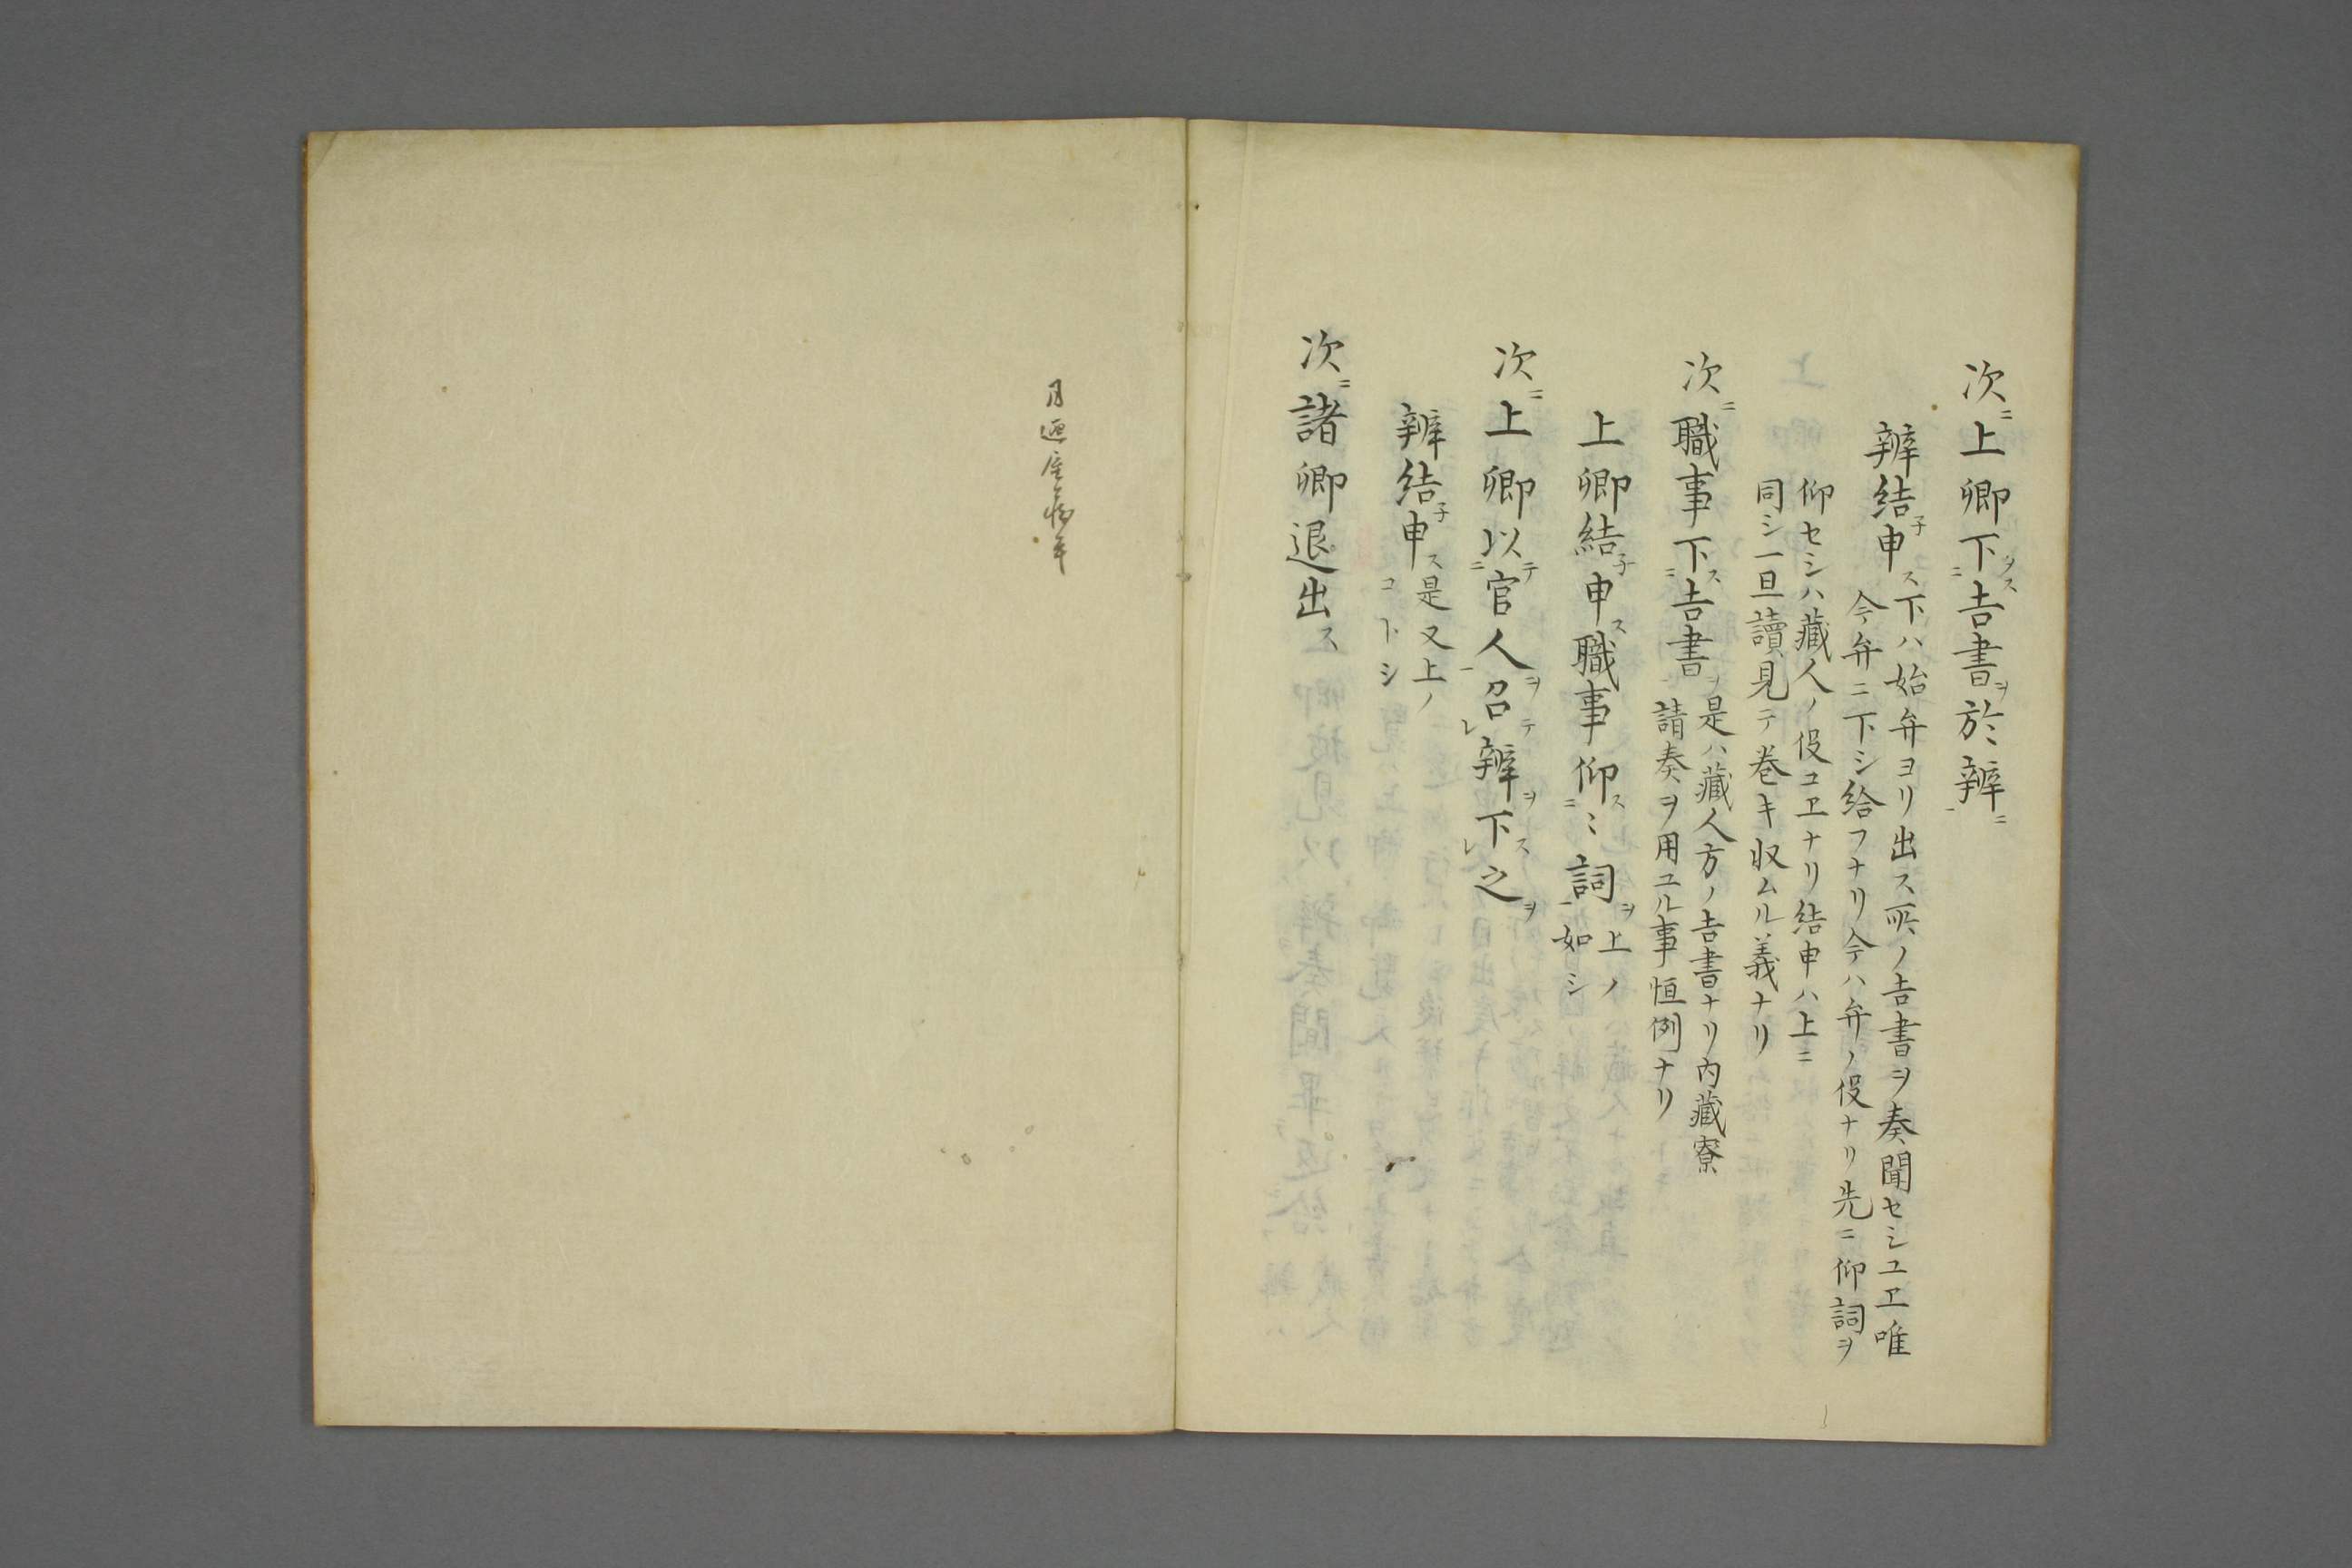 次ニ上卿下ス吉書ヲ於辨ニ
辨結子申ス下ハ始弁ヨリ出ス所ノ吉書ヲ奏聞セシユヱ唯
今弁ニ下シ給フナリ今ハ弁ノ役ナリ先ニ仰詞ヲ
仰セシハ藏人ノ役ユヱナリ結申ハ上ニ
同シ一旦讀見テ巻キ収ムル義ナリ
次ニ職事下ス吉書ヲ是ハ藏人方ノ吉書ナリ内藏寮
請奏ヲ用ユル事恒例ナリ
上卿結子申ス職事仰スニ〻詞ヲ上ノ
如シ
次ニ上卿以テ官人ヲ召テ辨ヲ下ス之ヲ
辨結子申ス是又上ノ
コトシ
次ニ諸卿退出ス